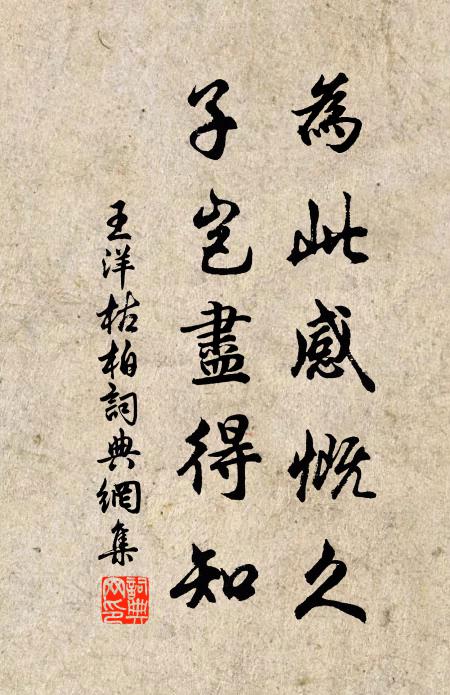 為此感慨久
子豈盡得知
王洋枯柏詞典網集
詞典
网印